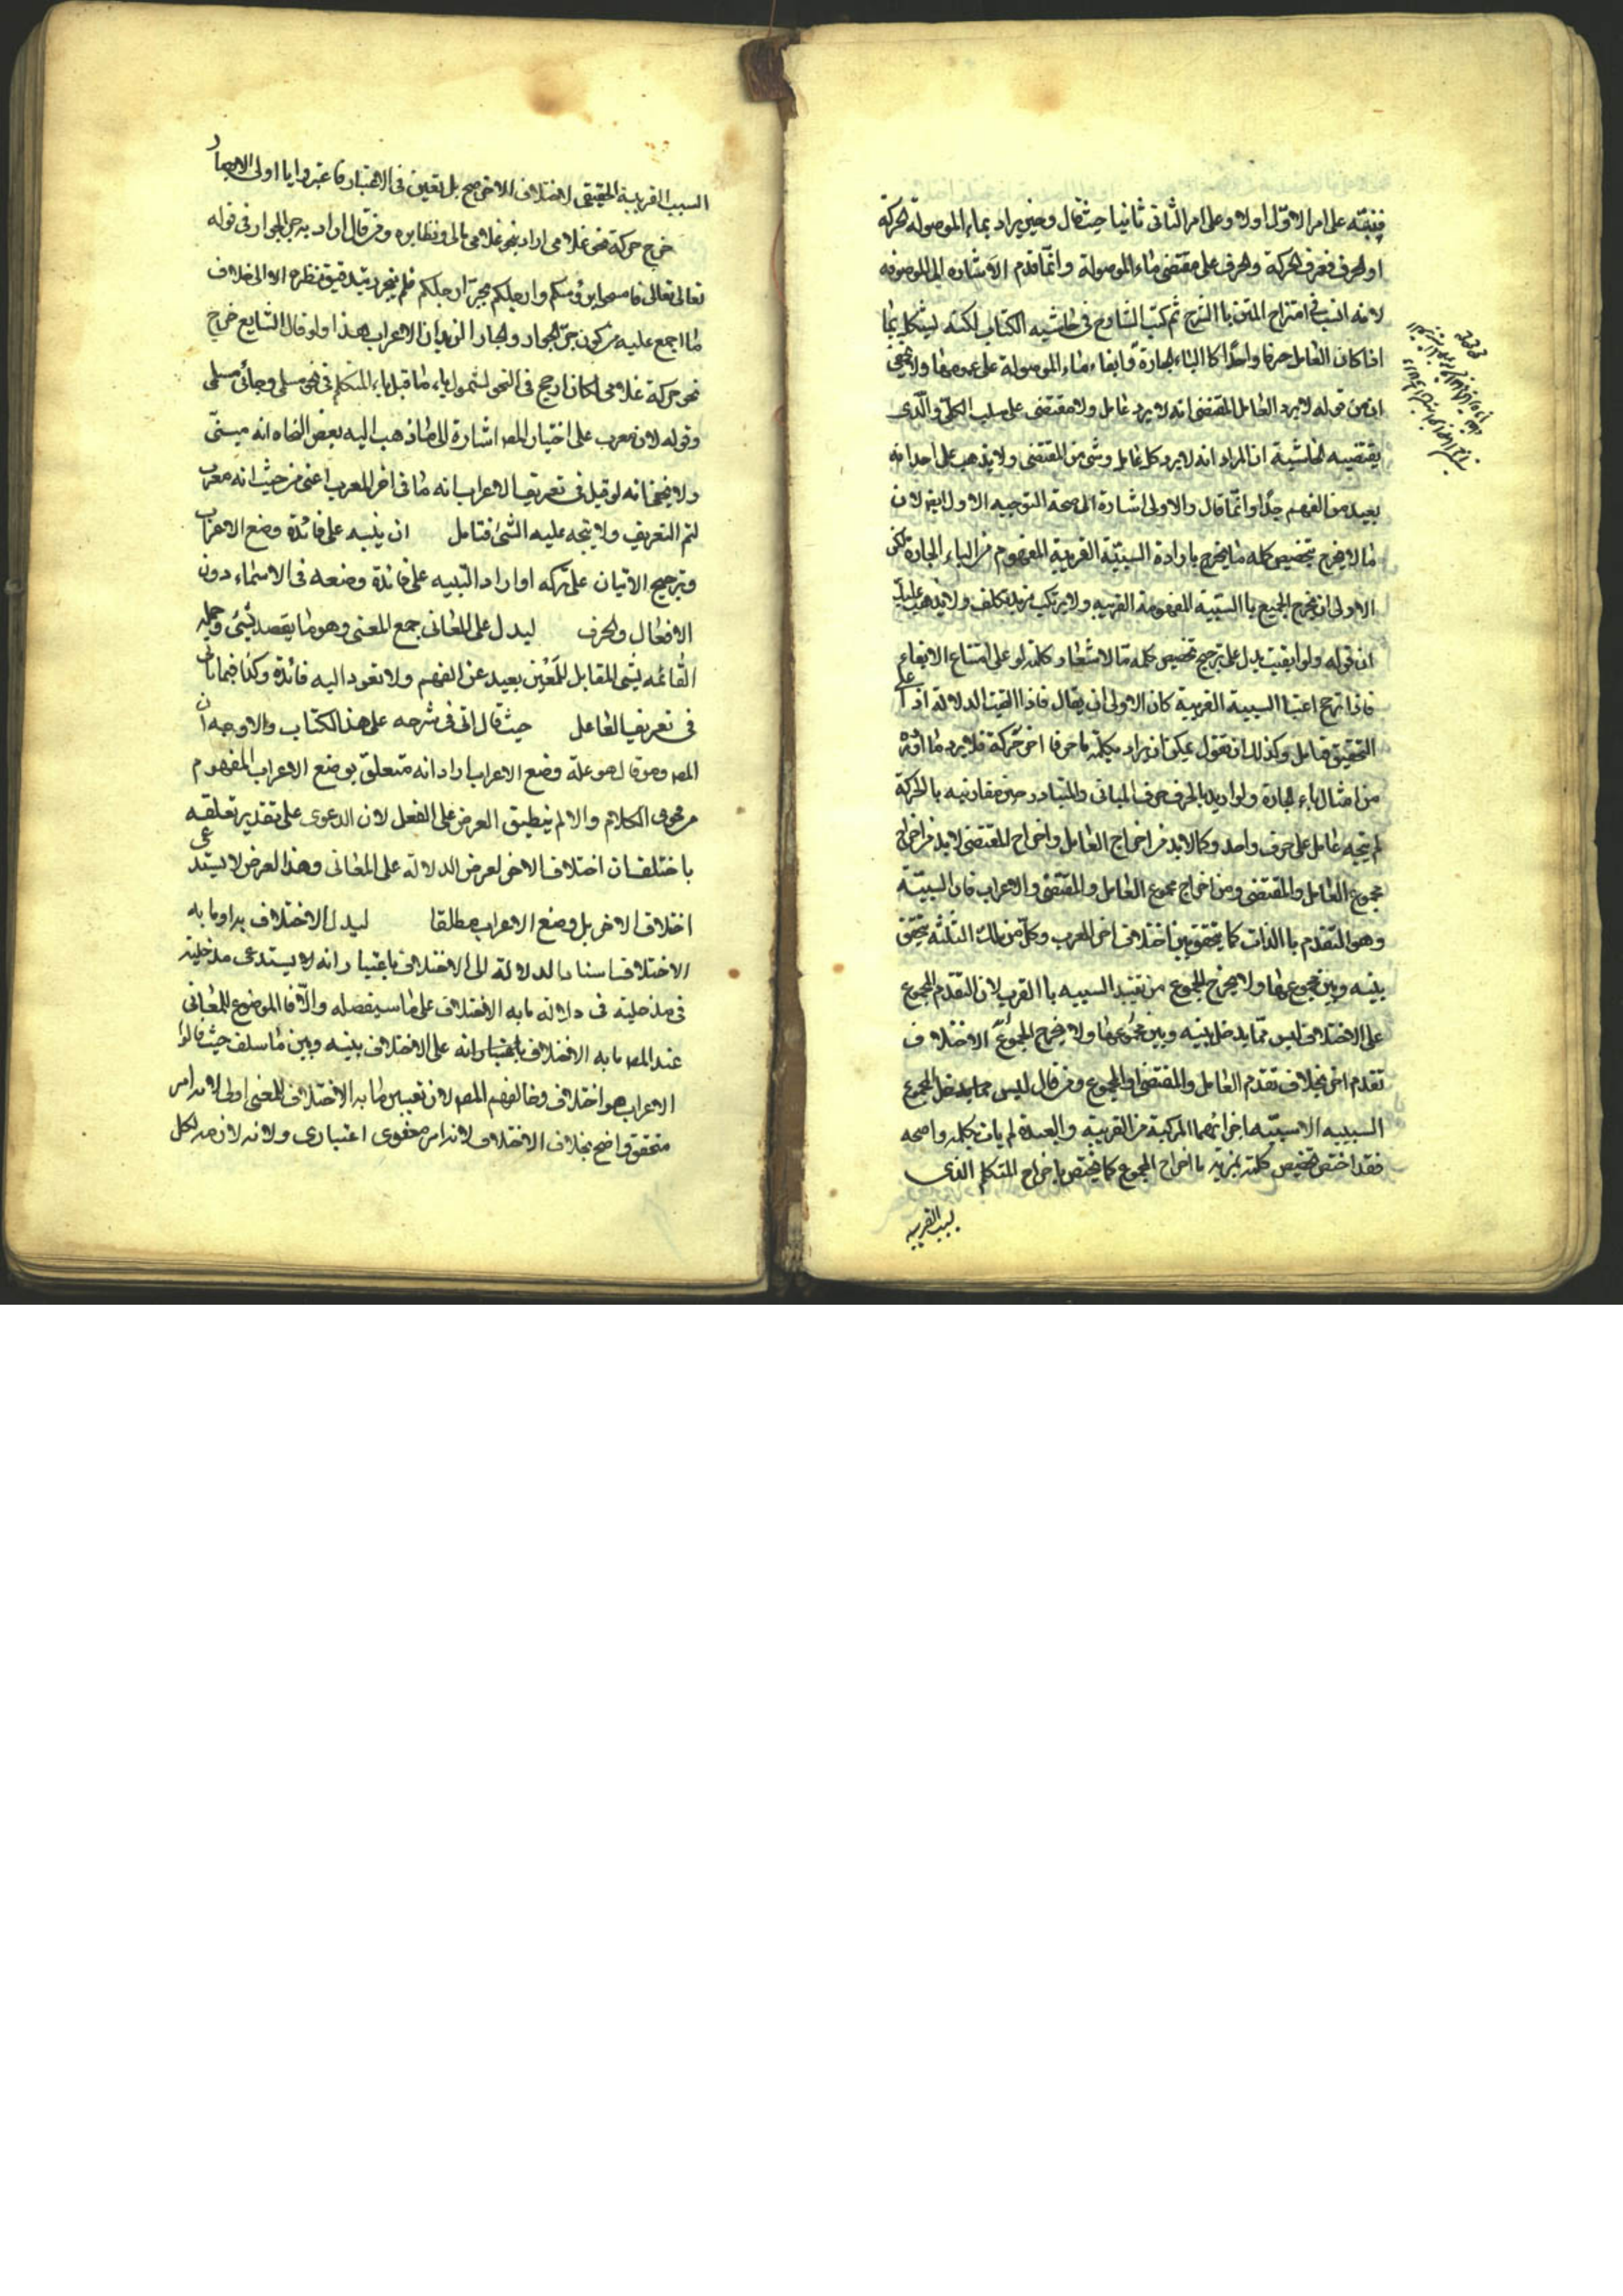 فنبّه على امر الاوّل اولا وعلى امر الثانى ثانيا حيث قال وحين يراد بماء الموصولة الحركة
او الحرف فعرف الحركة والحرف على مقتضى ماء الموصولة وانّما قدم الاشاره الى الموصوفه
لانه انسب فى امتزاج المتن باالشرح ثم كتب الشارح فى حاشيه الكتاب لكنه ليشكل بما
اذا كان العامل حرفا واحدًا كاالباء الجارة وابقاء ماء الموصولة على عمومها ولا يخفى
ان من قوله لا يرد العامل المقتضى انه لا يرد عامل ولا مقتضى على سلب الكلى والّذى
يقتضيه الحاشية ان المراد انه لا يرد كل عامل وشئ من المقتضى ولا يذهب على احد انه
بعيد من الفهم جدًا وانّما قال والاولى اشارة الى صحة التوجيه الاول ايضا لان
ما لا يخرج بتخصيص كلمه ما يخرج بارادة السببيّة القريبة المفهوم من الباء الجارة لكن
الاولى ان يخرج الجميع باالسببية المفهومة القريبه ولا يرتكب مزيد تكلف ولا يذهب عليك
ان قوله ولو ابقيت يدل على ترجيح تخصيص كلمه ما لاشعار كلمه لو على امتناع الابقاء
فاذا ترجح اعتبا السببية القريبة كان الاولى ان يقال فاذا ابقيت لدلالة اذا على
التحقيق فتامل وكذلك ان تقول يمكن ان يراد بكلمة ما حرفا اخر حركة فلا يرد ما اورده
من امثال باء الجارة ولو اريد بالحرف حرف المبانى والمتبادر حين مقارنيه باالحركة
لم يتجه عامل على حرف واحد وكما لابد من اخراج العامل واخراج المقتضى لابد من اخراج
مجموع العامل والمقتضى ومن اخراج مجموع العامل والمقتضى والاعراب فان السببيّة
وهو التقدم باالذات كما يتحقق بين اختلاف اخر المعرب وكل من تلك الثلثه يتحقق
بينه وبين مجموعها ولا يخرج المجموع من تقييد السببيه باالقرب لان التقدم المجموع
على الاختلاف ليس ممّا يدخل بينه وبين مجموعها ولا يخرج المجموع الاختلاف
تقدم اخر بخلاف تقدم العامل والمقتضى او المجموع ومن قال ليس مما يدخل المجموع
السببيه الاسببيّه اجزائهما المركبة من القريبة والبعيدة لم يات بكلمه واضحه
فقد اختص تخصيص كلمه بمزيد بااخراج المجموع كما يختص باخراج المتكلم الذى
لسبب القريبه
السبب القريبة الحقيقى لاختلاف الاخر صح بل تعين فى الاعتبار فاعتبروا يا اولى الابصار
خرج حركة نحو غلامى اراد بنحو غلامى مالى ونظايره ومن قال اراد به جر الجوار فى قوله
تعالى تعالى فامسحوا برؤسكم وارجلكم بجر ارجلكم فلم ينجرد بتدقيق نظره الا الى خلاف
ما اجمع عليه من كون جر الجوار والجار الزيدان الاعراب هذا ولو قال الشايع خرج
نحو حركة غلامى لكان ارجح فى النحو لشموله ياء ما قبل ياء المتكلم فى نحو مسلمى وجائى مسلمى
وقوله لان معرب على اختيار المصـ اشارة الى ما ذهب اليه بعض النحاه انه مبنىّ
ولا يخفى انه لو قيل فى تعريف الاعراب انه ما فى اخر المعرب اعنى من حيث انه معرب
لتم التعريف ولا يتجه عليه الشئ فتامل ان ينبه على فائدة وضع الاعراب
وترجيح الاتيان على تركه او اراد التنبيه على فائدة وضعه فى الاسماء دون
الافعال والحرف ليدل على المعانى جمع المعنى وهو ما يقصد بشئ وجمله
القائمه بشى المقابل للمَعْين بعيد عن الفهم ولا تعود اليه فائدة وكذا فيما ياتى
فى تعريف العامل حيث قال انى فى شرحه على هذا الكتاب والاوجه ان
المصـ وهو قال هو علة وضع الاعراب اراد انه متعلق بوضع الاعراب المفهوم
من فحوى الكلام والا لم ينطبق الغرض على الفعل لان الدعوى على تقدير تعلقه
باختلف ان اختلاف الاخر لغرض الدلالة على المعانى وهذا الغرض لا يستدعى
اختلاف الاخر بل وضع الاعراب مطلقا ليدل الاختلاف به او ما به
الاختلاف اسناد الدلالة الى الاختلاف باعتبار انه لا يستدعى مدخليته
فى مدخليته فى دلالة ما به الاختلاف على ما سيفصله والّا فالموضوع للمعانى
عند المصـ ما به الاختلاف باعتبار انه على الاختلاف بينه وبين ما سلف حيث قالوا
الاعراب هو اختلاف وخالفهم المصـ لان تعيين ما به الاختلاف للمعنى اولى لانه امر
متحقق واضح بخلاف الاختلاف لانه امر معنوى اعتبارى ولانه لازمه لكل